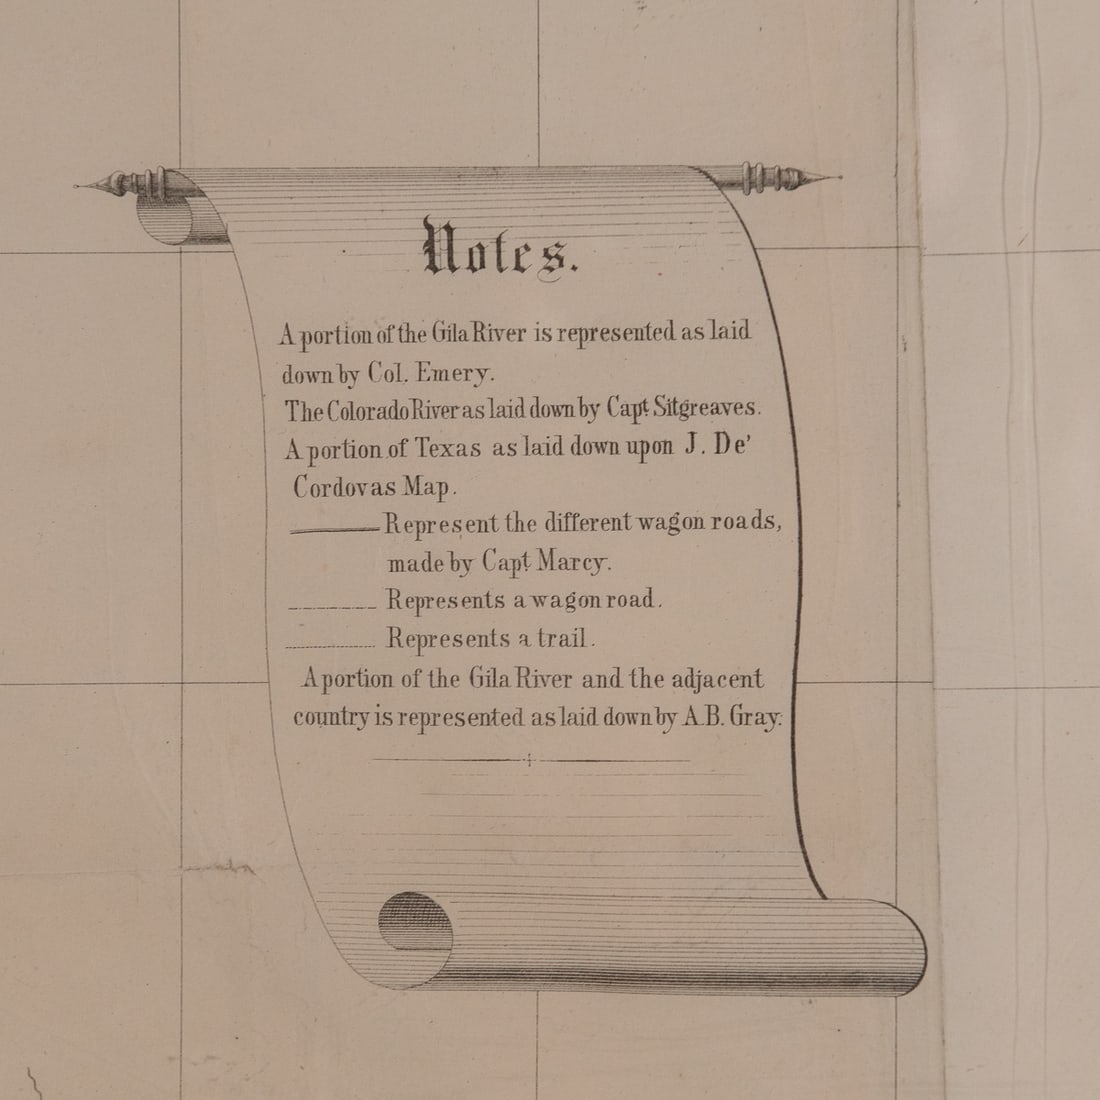 Notes.
A portion of the Gila River is represented as laid
down by Col. Emery.
The Colorado River as laid down by Capt. Sitgreaves.
A portion of Texas as laid down upon J. De'
Cordovas Map.
Represent the different wagon roads,
made by Capt Marcy.
Represents a wagon road.
Represents a trail.
A portion of the Gila River and the adjacent
country is represented as laid down by A.B. Gray.